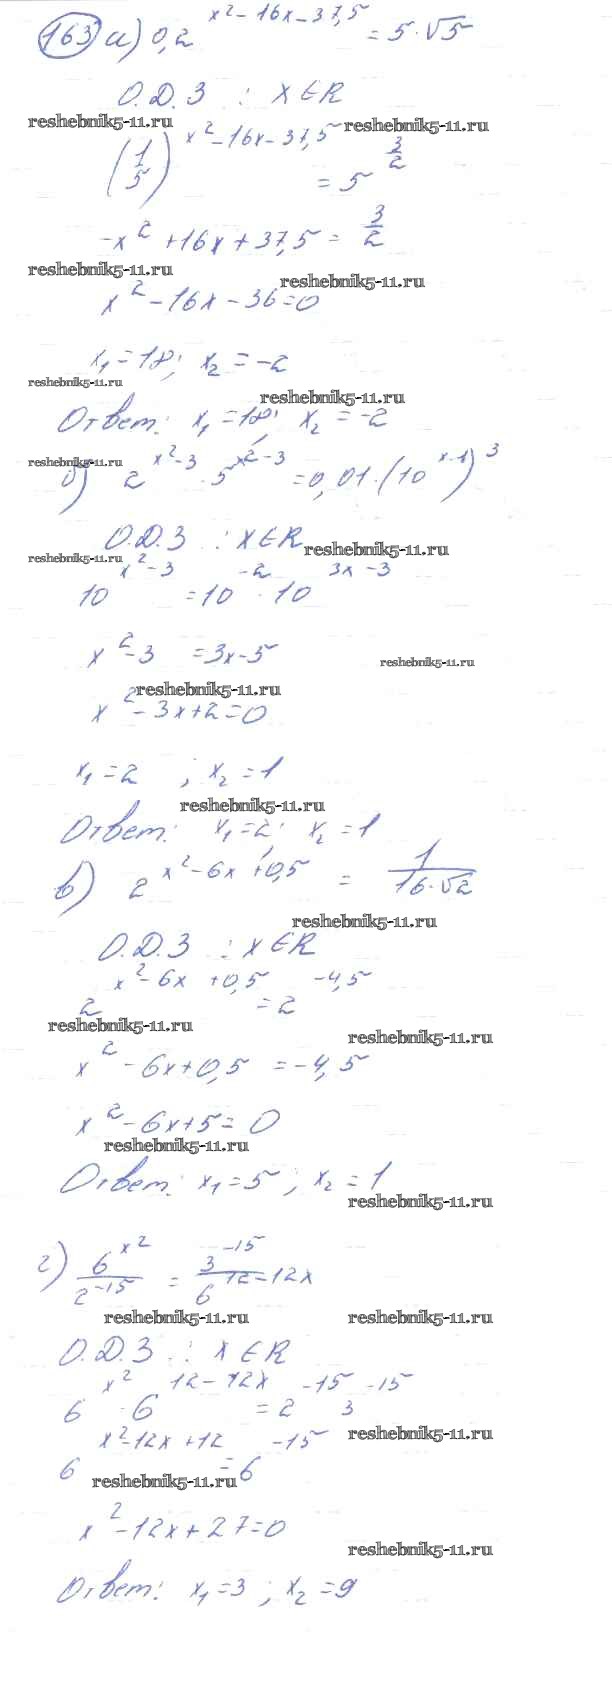 163 а) 0,2^(x² - 16x - 37,5) = 5 · √5
О.Д.З : x ∈ R
reshebnik5-11.ru
(1/5)^(x² - 16x - 37,5) = 5^(3/2)
reshebnik5-11.ru
-x² + 16x + 37,5 = 3/2
reshebnik5-11.ru
reshebnik5-11.ru
x² - 16x - 36 = 0
x₁ = 18; x₂ = -2
reshebnik5-11.ru
reshebnik5-11.ru
Ответ: x₁ = 18; x₂ = -2
reshebnik5-11.ru
б) 2^(x² - 3) · 5^(x² - 3) = 0,01 · (10^(x - 1))³
О.Д.З : x ∈ R
reshebnik5-11.ru
reshebnik5-11.ru
10^(x² - 3) = 10^(-2) · 10^(3x - 3)
x² - 3 = 3x - 5
reshebnik5-11.ru
reshebnik5-11.ru
x² - 3x + 2 = 0
x₁ = 2 ; x₂ = 1
reshebnik5-11.ru
Ответ: x₁ = 2; x₂ = 1
в) 2^(x² - 6x + 0,5) = 1/(16 · √2)
reshebnik5-11.ru
О.Д.З : x ∈ R
2^(x² - 6x + 0,5) = 2^(-4,5)
reshebnik5-11.ru
reshebnik5-11.ru
x² - 6x + 0,5 = -4,5
x² - 6x + 5 = 0
reshebnik5-11.ru
Ответ: x₁ = 5 ; x₂ = 1
reshebnik5-11.ru
г) 6^(x²)/2^(-15) = 3^(-15)/6^(12 - 12x)
reshebnik5-11.ru
reshebnik5-11.ru
О.Д.З : x ∈ R
6^(x²) · 6^(12 - 12x) = 2^(-15) 3^(-15)
reshebnik5-11.ru
6^(x² - 12x + 12) = 6^(-15)
reshebnik5-11.ru
x² - 12x + 27 = 0
reshebnik5-11.ru
Ответ: x₁ = 3 ; x₂ = 9